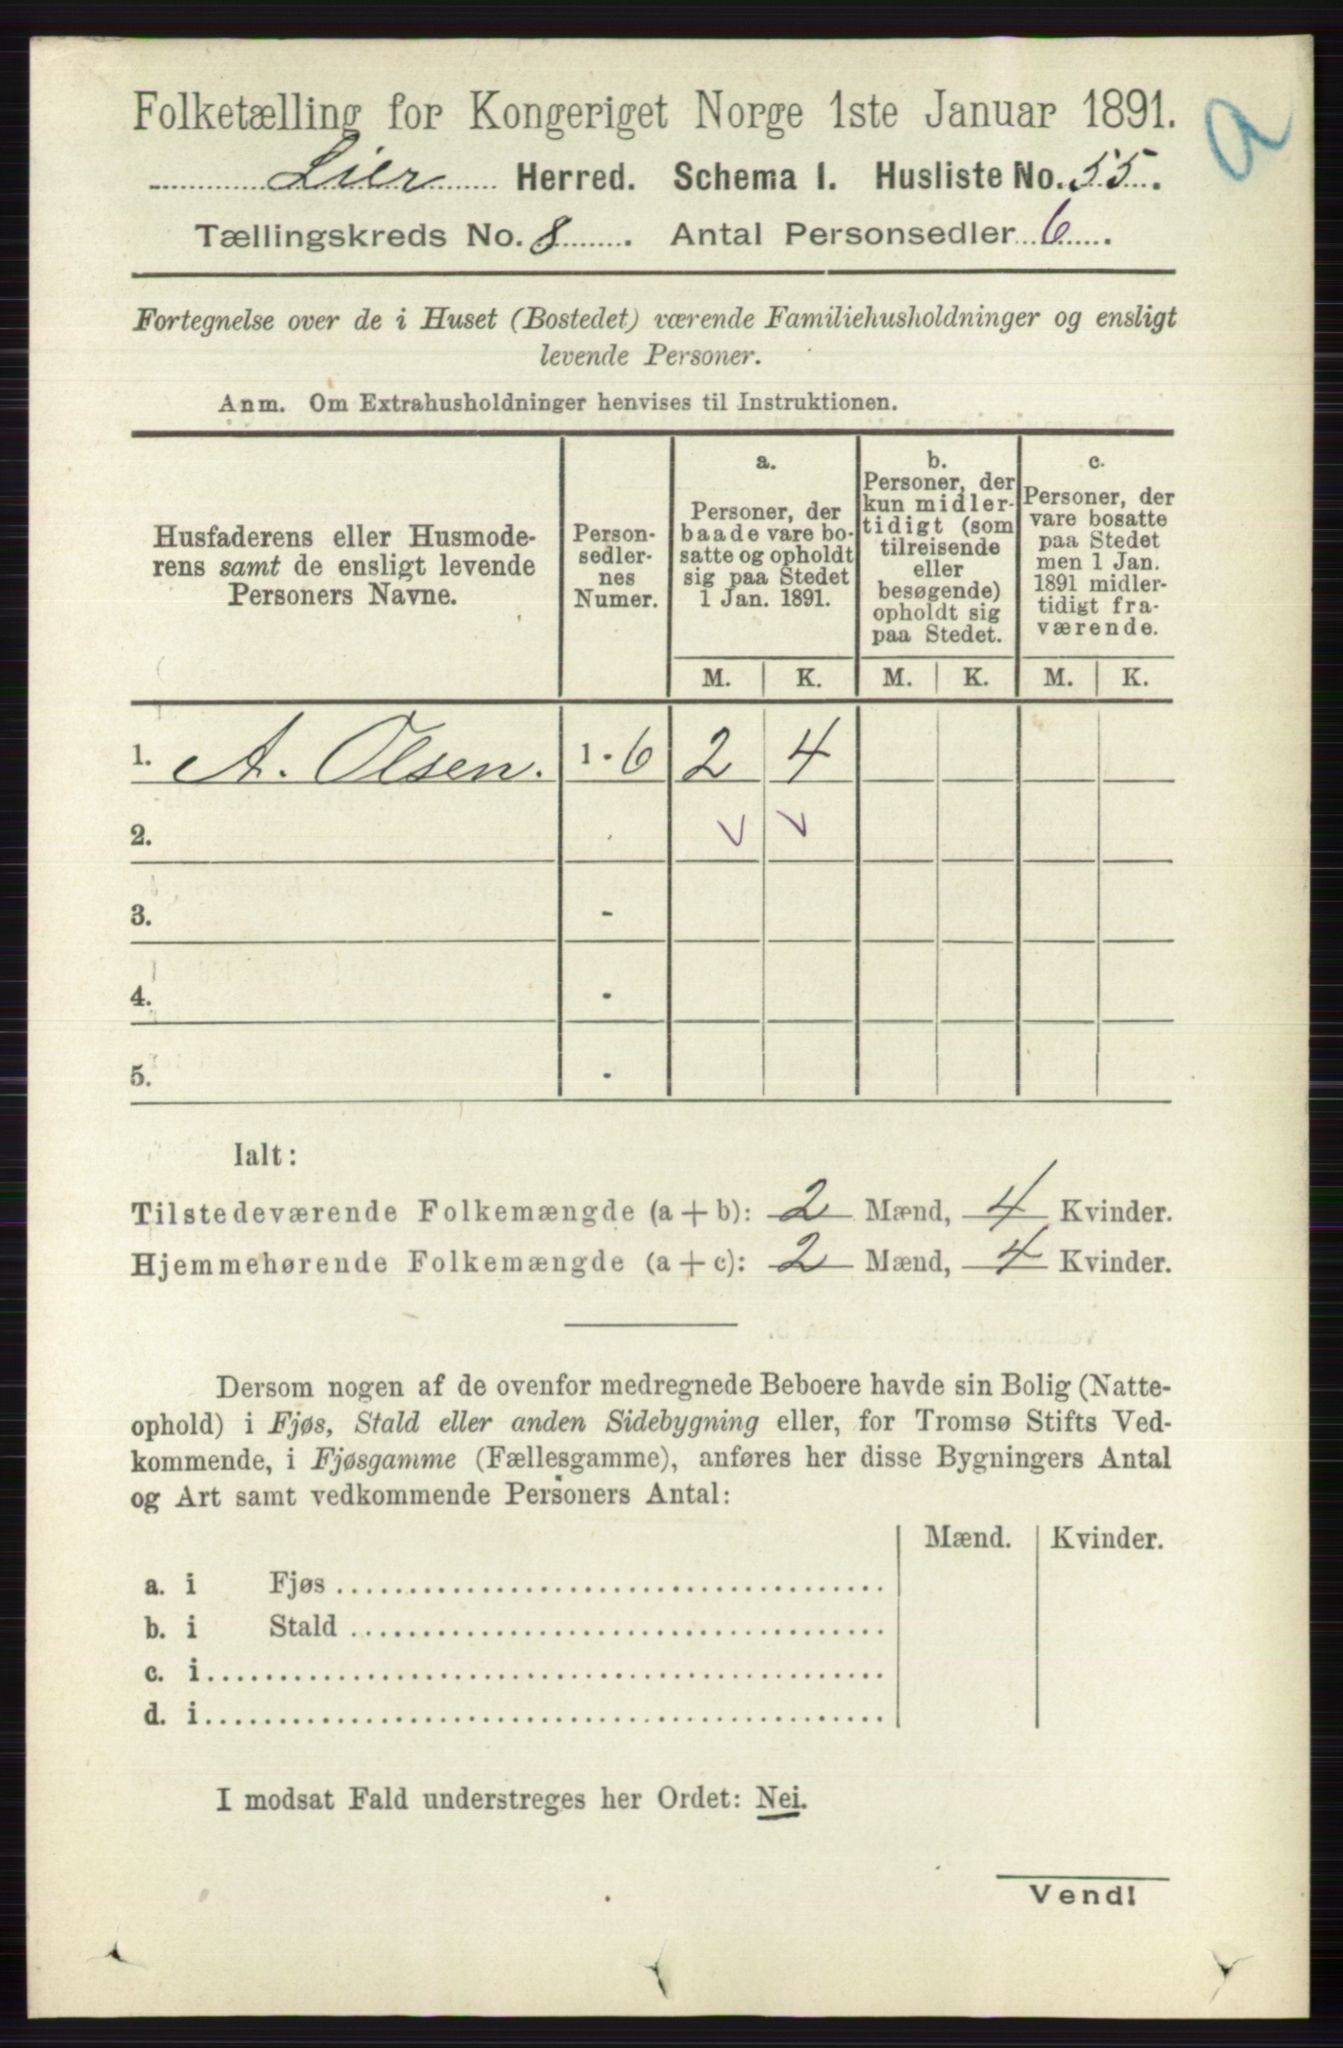 Folketælling for Kongeriget Norge 1ste Januar 1891.
a
Lier Herred. Schema I. Husliste No. 55.
Tællingskreds No. 8. Antal Personsedler 6.
Fortegnelse over de i Huset (Bostedet) værende Familiehusholdninger og ensligt
levende Personer.
Anm. Om Extrahusholdninger henvises til Instruktionen.
Husfaderens eller Husmode-
rens samt de ensligt levende
Personers Navne.
Person-
sedler-
nes
Numer.
a.
Personer, der
baade vare bo-
satte og opholdt
sig paa Stedet
1 Jan. 1891.
b.
Personer, der
kun midler-
tidigt (som
tilreisende
eller
besøgende)
opholdt sig
paa Stedet.
c.
Personer, der
vare bosatte
paa Stedet
men 1 Jan.
1891 midler-
tidigt fra-
værende.
M. K. M. K. M. K.
1. A. Olsen. 1 - 6 2 4
2.
3. -
4. -
5. -
Ialt:
Tilstedeværende Folkemængde (a + b): 2 Mænd, 4 Kvinder.
Hjemmehørende Folkemængde (a + c): 2 Mænd, 4 Kvinder.
Dersom nogen af de ovenfor medregnede Beboere havde sin Bolig (Natte-
ophold) i Fjøs, Stald eller anden Sidebygning eller, for Tromsø Stifts Ved-
kommende, i Fjøsgamme (Fællesgamme), anføres her disse Bygningers Antal
og Art samt vedkommende Personers Antal:
Mænd. Kvinder.
a. i Fjøs
b. i Stald
c. i
d. i
I modsat Fald understreges her Ordet: Nei.
Vend!